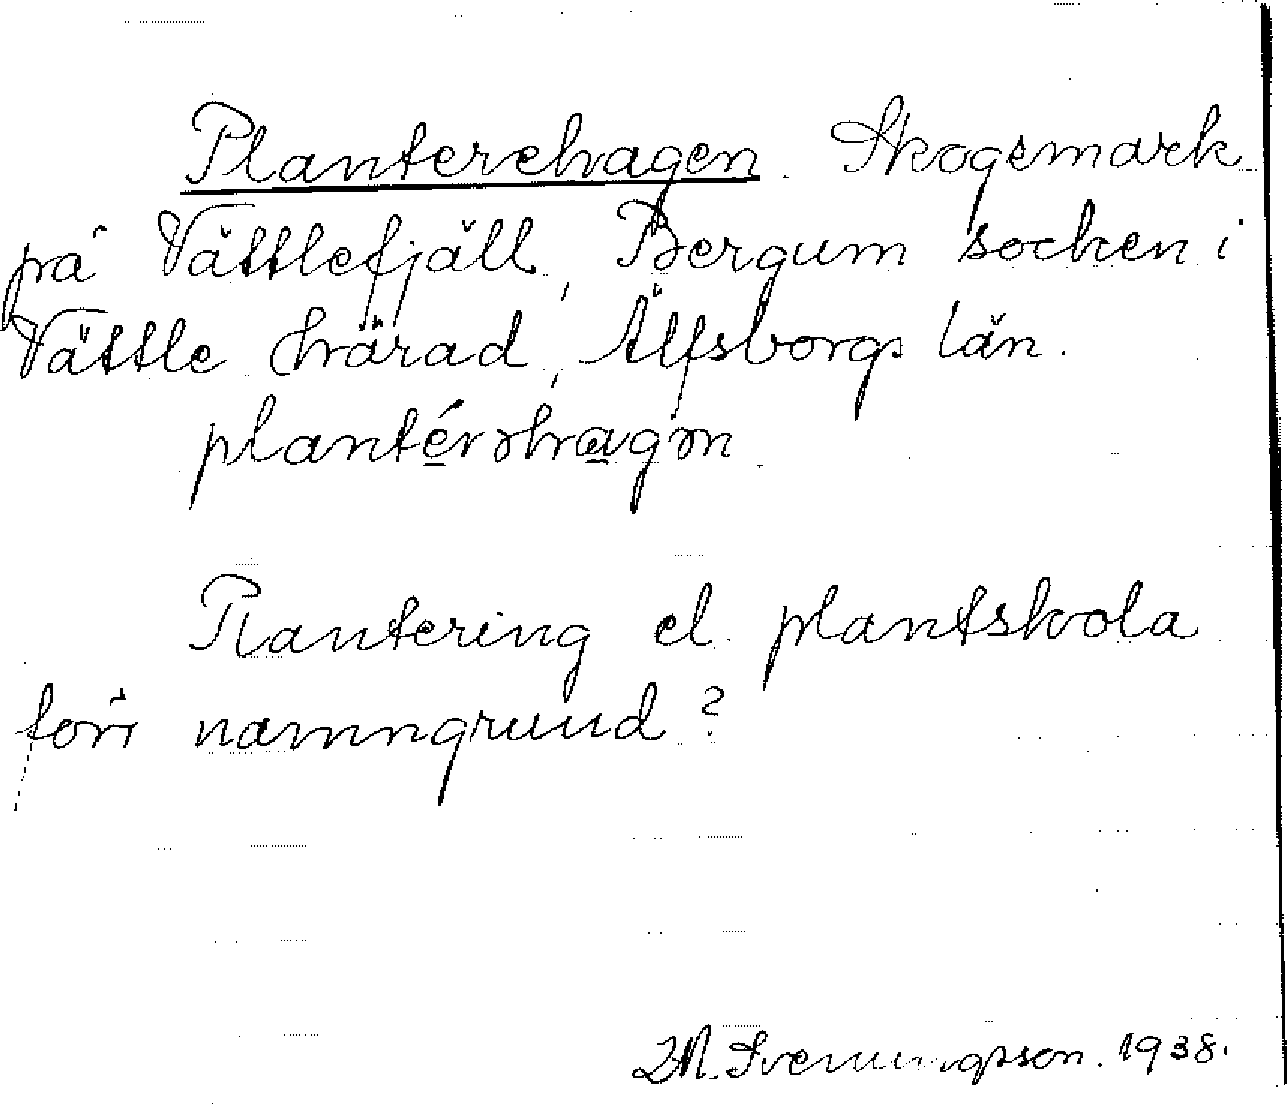 Planterehagen. Skogsmark
på Vättlefjäll, Bergum socken i
Vättle härad, Älfsborgs län.
plantérəhagən
Plantering el. plantskola
förr namngrund?
Sverningsson. 1938.